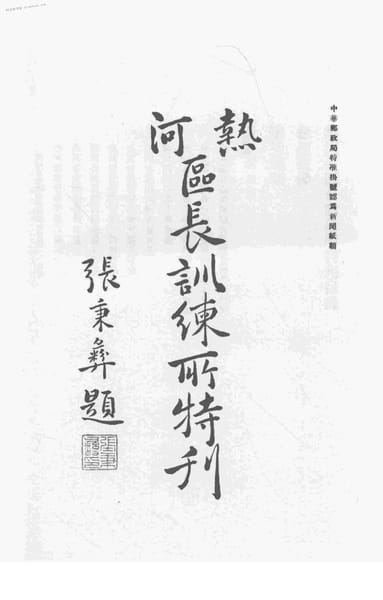 中華郵政局特准掛號認爲新聞紙類
熱河
區長訓練所特刊
張秉彝題